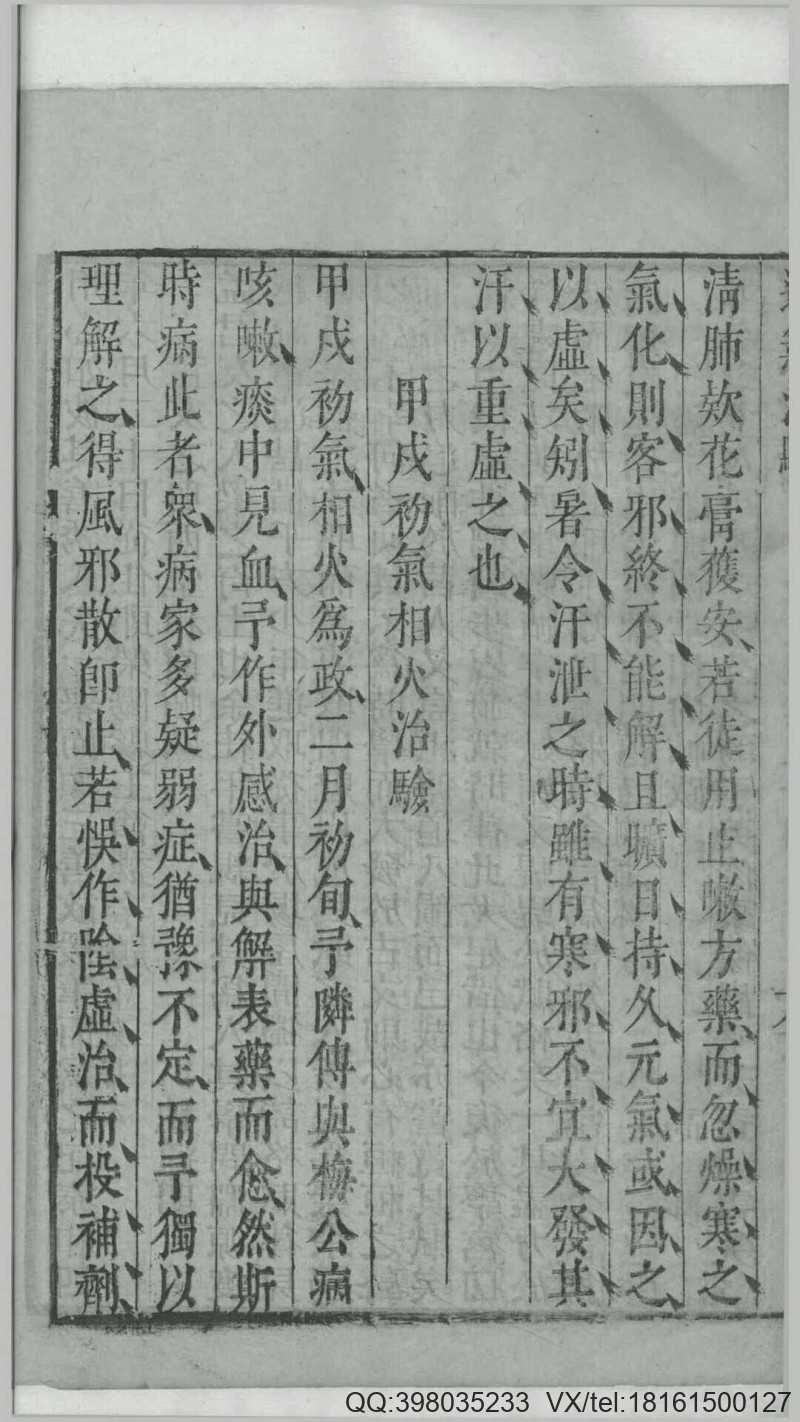 清肺欵花膏獲安、若徒用止嗽方藥、而忽燥寒之
氣化則客邪終不能解且曠日持久元氣或因之
以虛矣矧暑令汗泄之時雖有寒邪不宜大發其
汗以重虛之也
甲戌初氣相火治驗
甲戌初氣、相火爲政、二月初旬、予隣傅與梅公病
咳嗽、痰中見血、予作外感治、與解表藥而愈、然斯
時病此者衆、病家多疑弱症、猶豫不定、而予獨以
理解之、得風邪散卽止、若悞作陰虛治、而投補劑、
QQ:398035233 VX/tel:18161500127